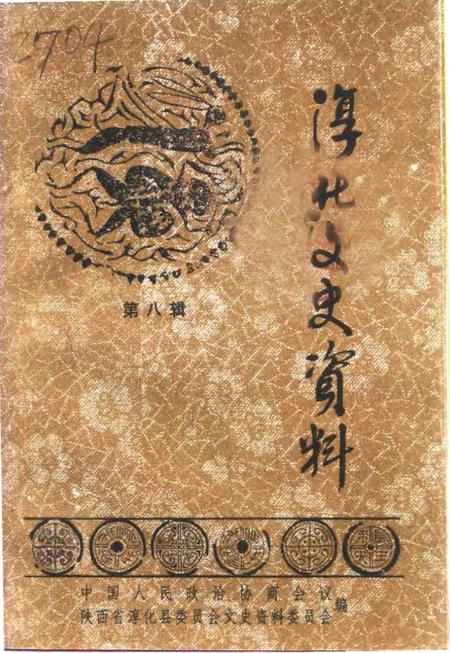 2704
淳化文史資料
第八辑
中国人民政治协商会议
陕西省淳化县委员会文史资料委员会
编